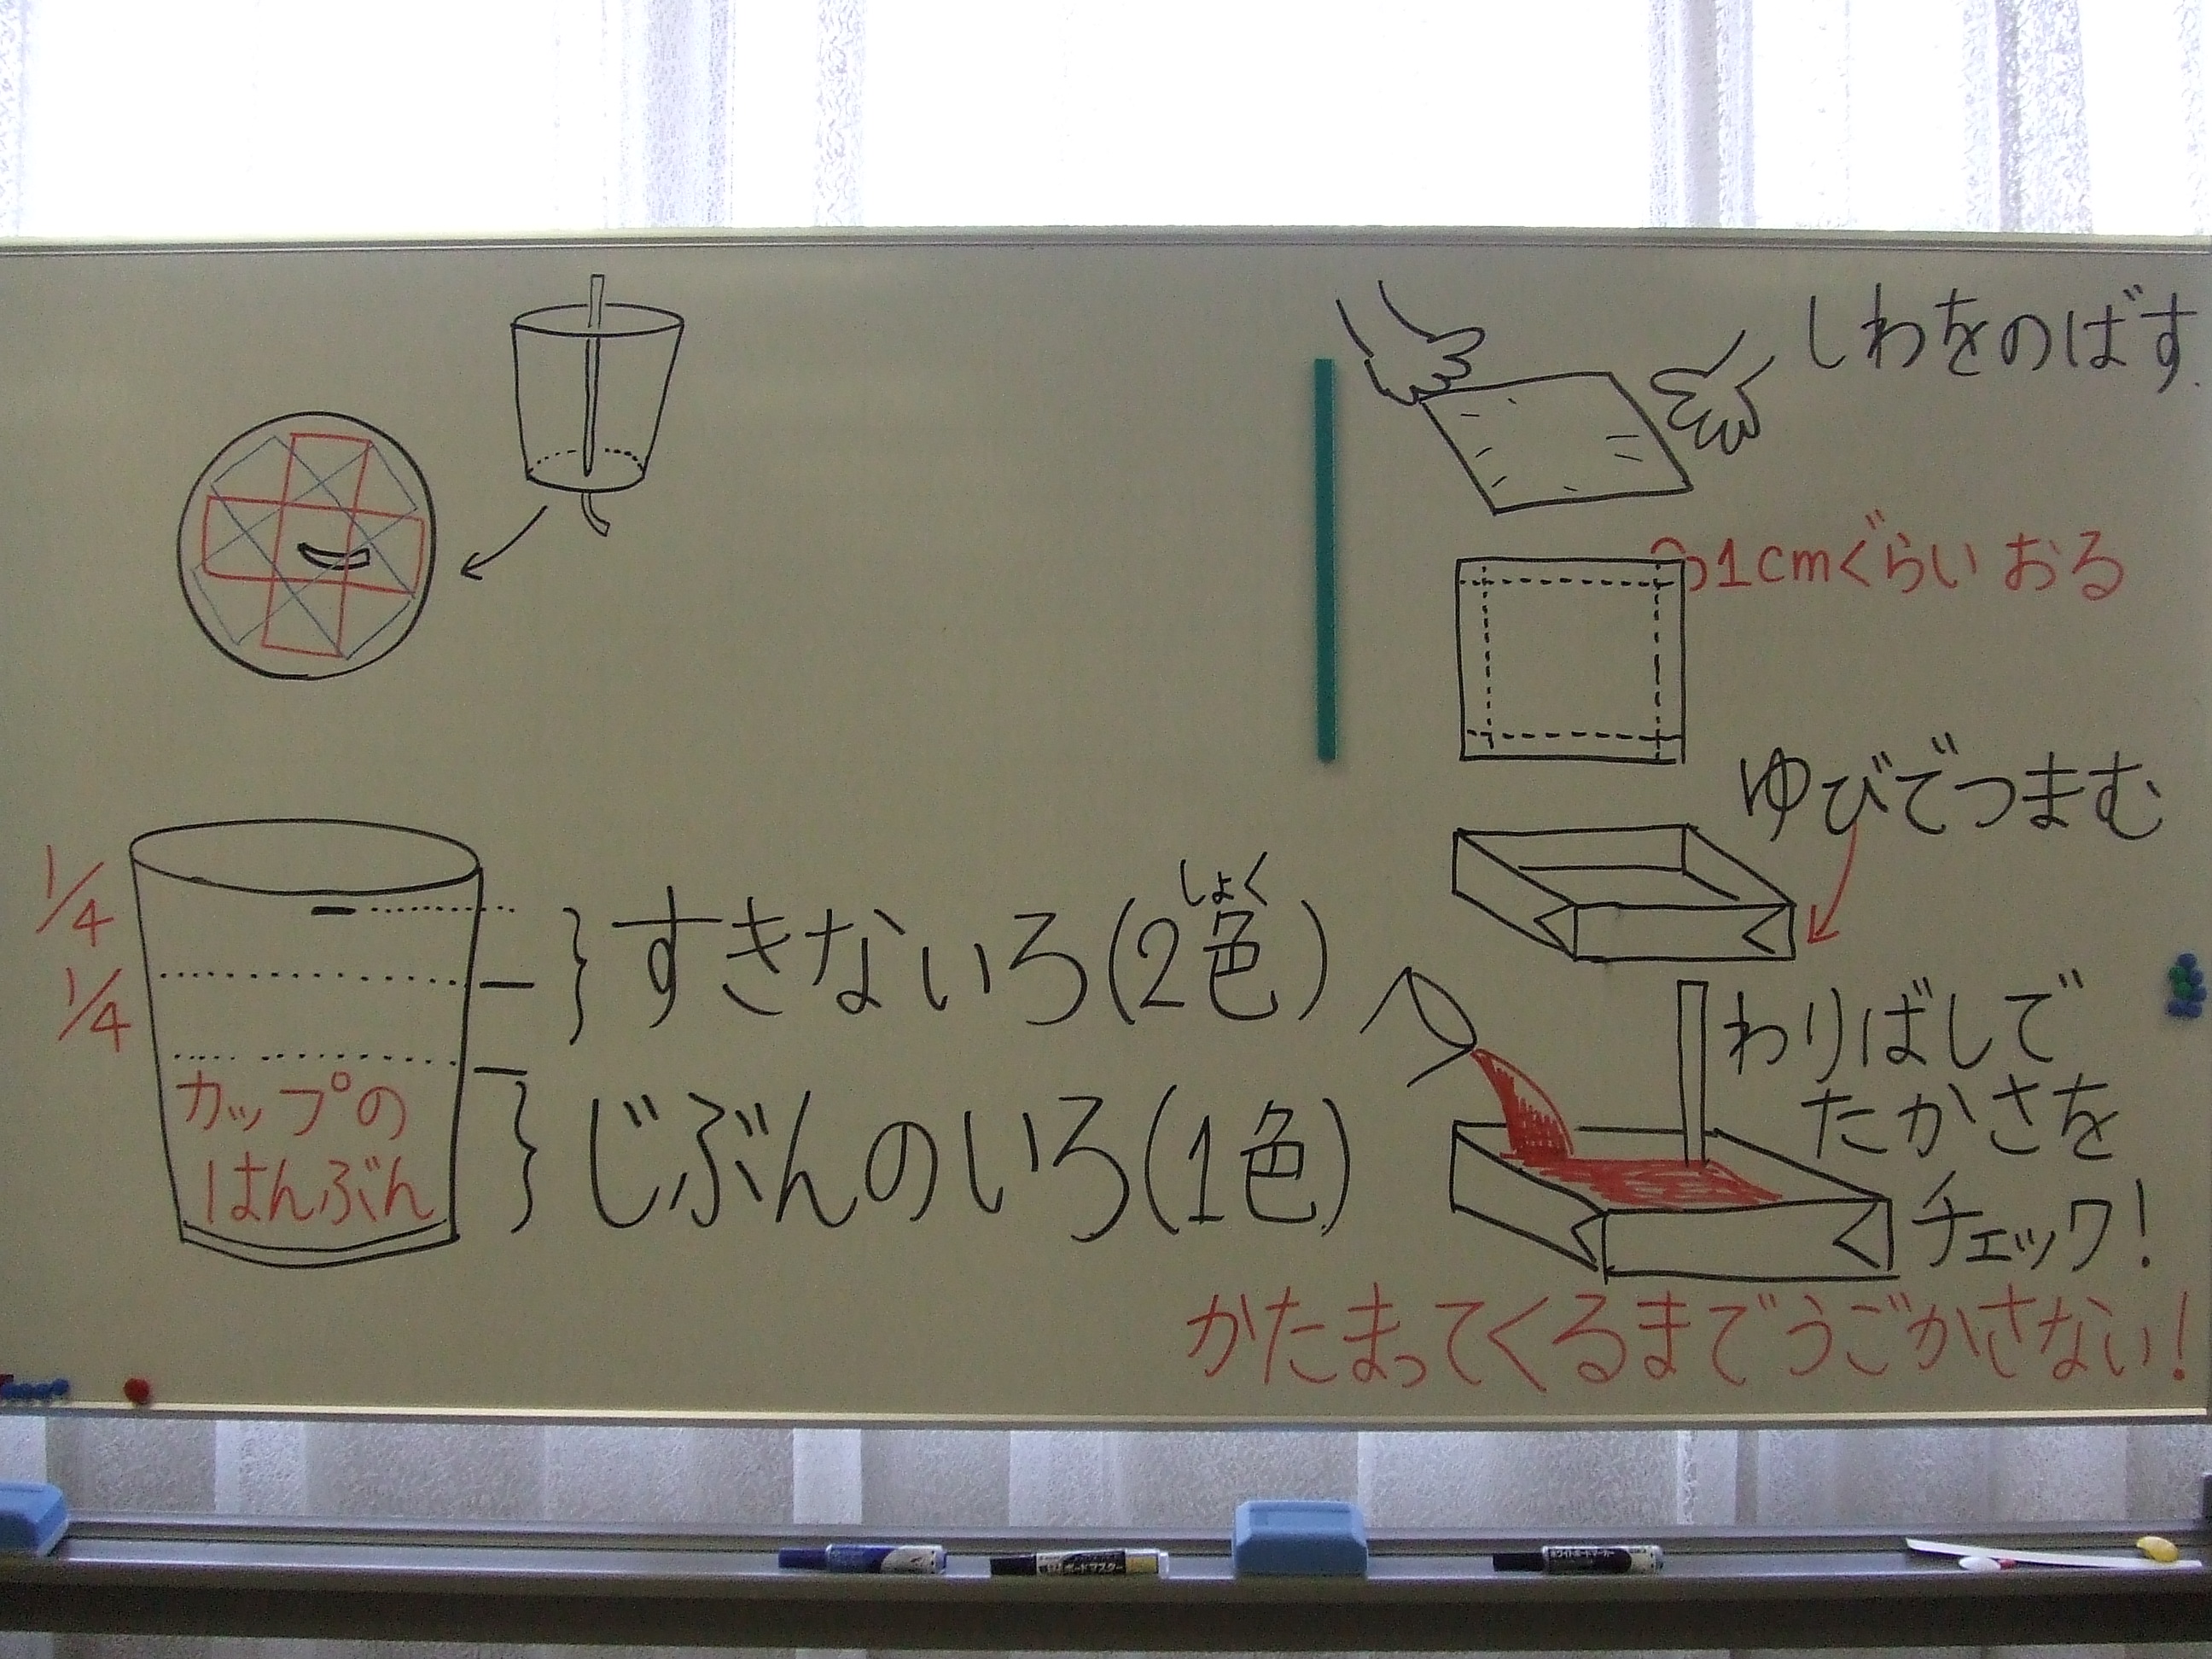 しわをのばす.
1cmぐらいおる
ゆびでつまむ
わりばしで
たかさを
チェック!
かたまってくるまでうごかさない!
1/4
1/4
カップの
はんぶん
しょく
すきないろ(2色)
じぶんのいろ(1色)